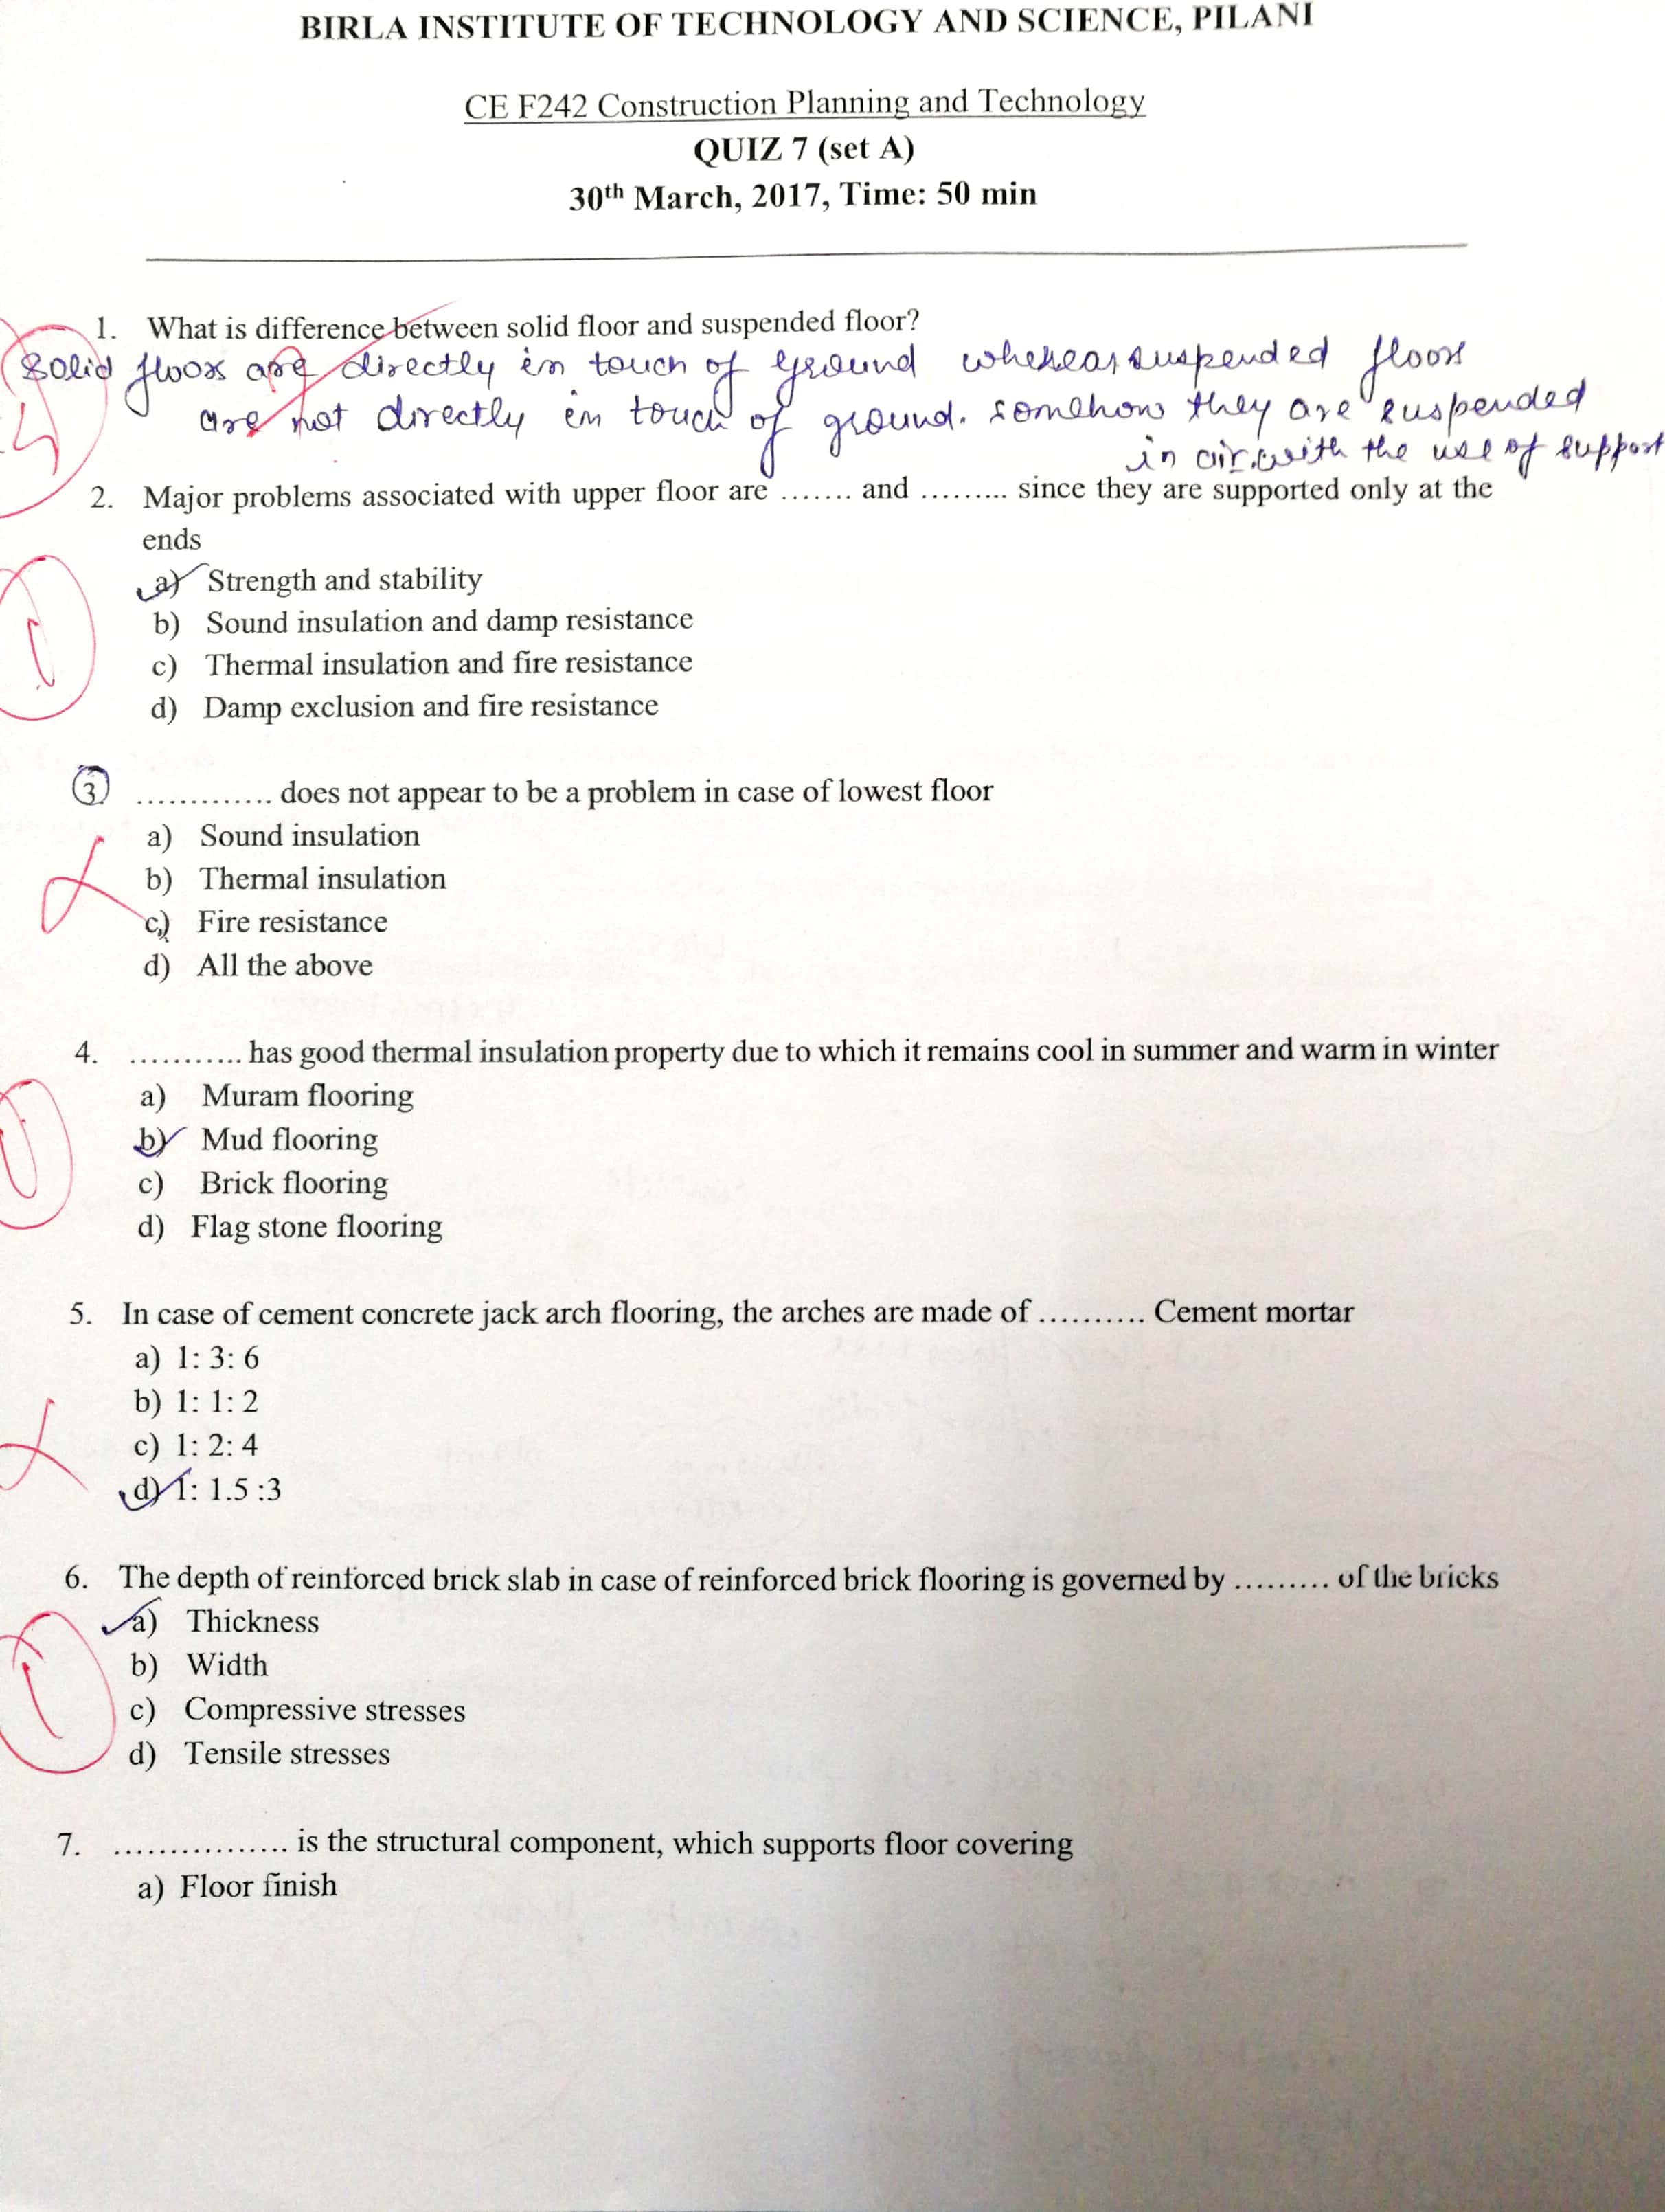 BIRLA INSTITUTE OF TECHNOLOGY AND SCIENCE, PILANI
CE F242 Construction Planning and Technology
QUIZ 7 (set A)
30th March, 2017, Time: 50 min
1. What is difference between solid floor and suspended floor?
Solid floors are directly in touch of ground whereas suspended floors
are not directly in touch of ground. somehow they are suspended
in air with the use of support
2. Major problems associated with upper floor are ....... and ......... since they are supported only at the
ends
a) Strength and stability
b) Sound insulation and damp resistance
c) Thermal insulation and fire resistance
d) Damp exclusion and fire resistance
3 ............. does not appear to be a problem in case of lowest floor
a) Sound insulation
b) Thermal insulation
c) Fire resistance
d) All the above
4. ........... has good thermal insulation property due to which it remains cool in summer and warm in winter
a) Muram flooring
b) Mud flooring
c) Brick flooring
d) Flag stone flooring
5. In case of cement concrete jack arch flooring, the arches are made of .......... Cement mortar
a) 1: 3: 6
b) 1: 1: 2
c) 1: 2: 4
d) 1: 1.5 :3
6. The depth of reinforced brick slab in case of reinforced brick flooring is governed by ......... of the bricks
a) Thickness
b) Width
c) Compressive stresses
d) Tensile stresses
7. ................. is the structural component, which supports floor covering
a) Floor finish